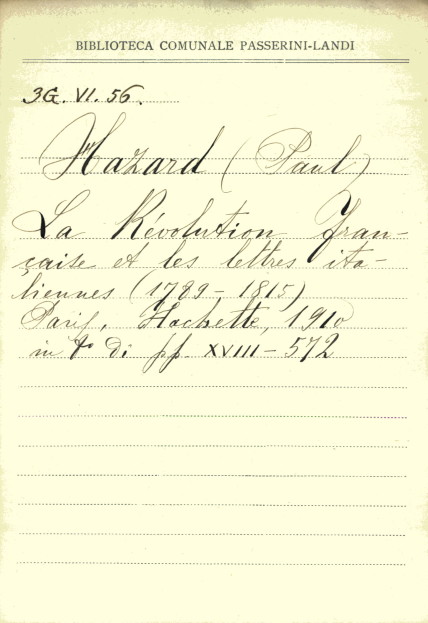 BIBLIOTECA COMUNALE PASSERINI-LANDI
3G. VI. 56.
Hazard (Paul)
La Révolution Fran-
çaise et les lettres ita-
liennes (1789-1815)
Paris, Hachette, 1910
in 8° di pp. XVIII-572